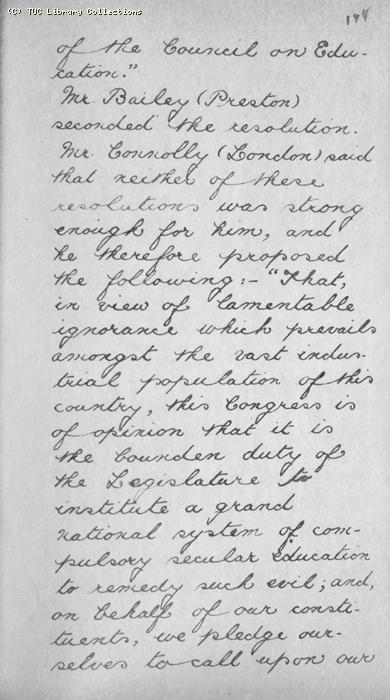 (C) TUC Library Collections
194
of the Council on Edu-
cation."
Mr. Bailey (Preston)
seconded the resolution.
Mr. Connolly (London) said
that neither of these
resolutions was strong
enough for him, and
he therefore proposed
the following:- "That,
in view of lamentable
ignorance which prevails
amongst the vast indus-
trial population of this
country, this Congress is
of opinion that it is
the bounden duty of
the Legislature to
institute a grand
national system of com-
pulsory secular education
to remedy such evil; and,
on behalf of our consti-
tuents, we pledge our-
selves to call upon our